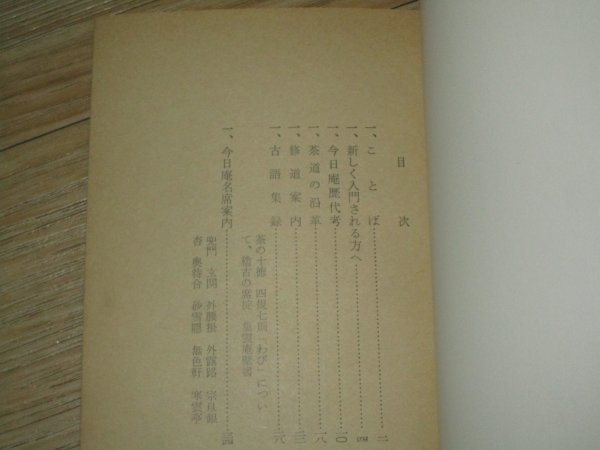 目次
一、ことば……………二
一、新しく入門される方へ……………四
一、今日庵歴代考……………一〇
一、茶道の沿革……………一八
一、修道案内……………二三
一、古語集録……………二六
茶の十徳 四規七則 「わび」につい
て、稽古の席定 集雲庵壁書
一、今日庵名席案内……………
兜門 玄関 外腰掛 外露路
杏 奥待合 砂雪隠 無色軒 寒雲亭